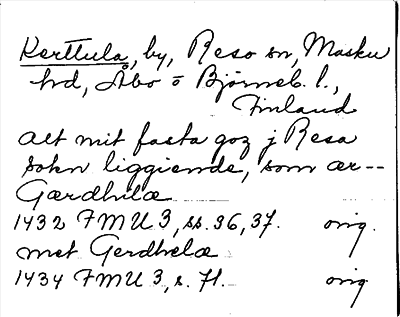 Kerttula, by, Reso sn, Masku
hd, Åbo o Björneb. l.,
Finland
alt mit fasta goz j Resa
sokn liggiende, som ær--
Gærdhilæ
1432 FMU 3, ss. 36, 37. orig.
met Gerdhelæ
1434 FMU 3, s. 71. orig